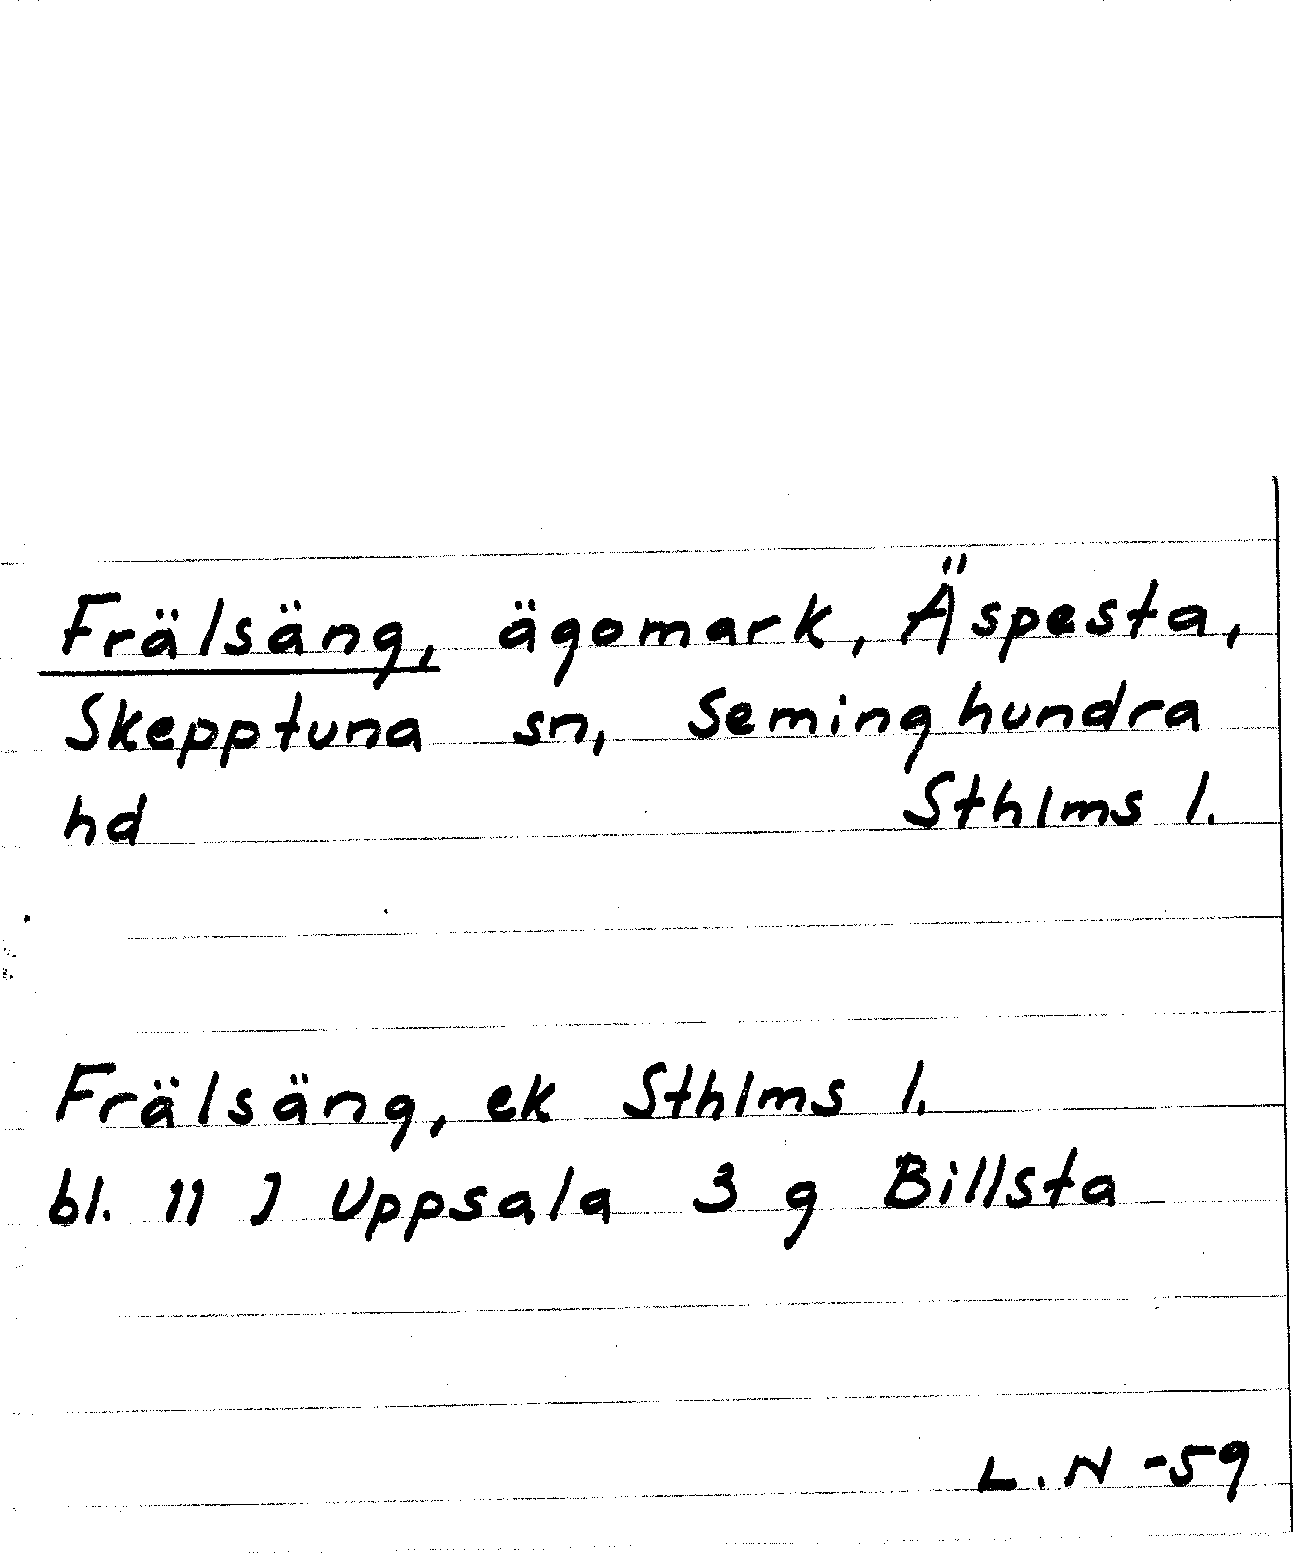 Frälsäng, ägomark, Äspesta,
Skepptuna sn, Seminghundra
hd Sthlms l.
Frälsäng, ek Sthlms l.
bl. 11 J Uppsala 3 g Billsta
L.N -59